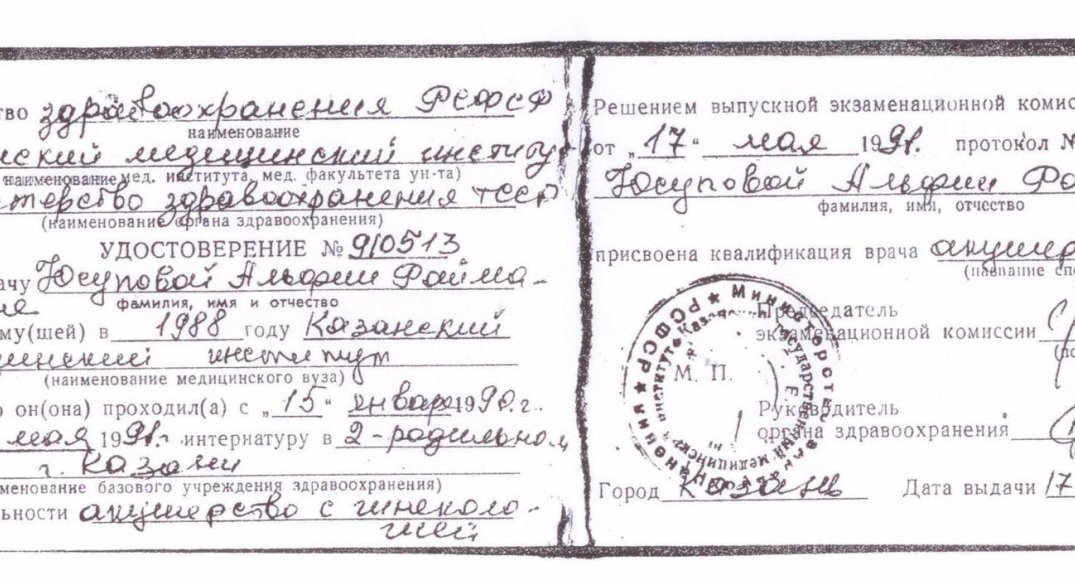 тво здравоохранения РСФСР
наименование
нский медицинский институт
наименование мед. института, мед. факультета ун-та)
терство здравоохранения ТССР
(наименование органа здравоохранения)
УДОСТОВЕРЕНИЕ № 910513
ачу Юсуповой Альфии Файма-
не
фамилия, имя и отчество
му(шей) в 1988 году Казанский
цинский институт
(наименование медицинского вуза)
о он(она) проходил(а) с „15“ января 1990 г.
мая 1991 г. интернатуру в 2-родильном
г. Казани
менование базового учреждения здравоохранения)
ьности акушерство с гинеколо-
гией
Решением выпускной экзаменационной комис
от „17“ мая 1991. протокол №
Юсуповой Альфии Фа
фамилия, имя, отчество
присвоена квалификация врача акушер
(название спе
Председатель
экзаменационной комиссии
(по
М. П.
Руководитель
органа здравоохранения
Город Казань Дата выдачи 17
Министерство здравоохранения РСФСР
Казанский государственный медицинский институт